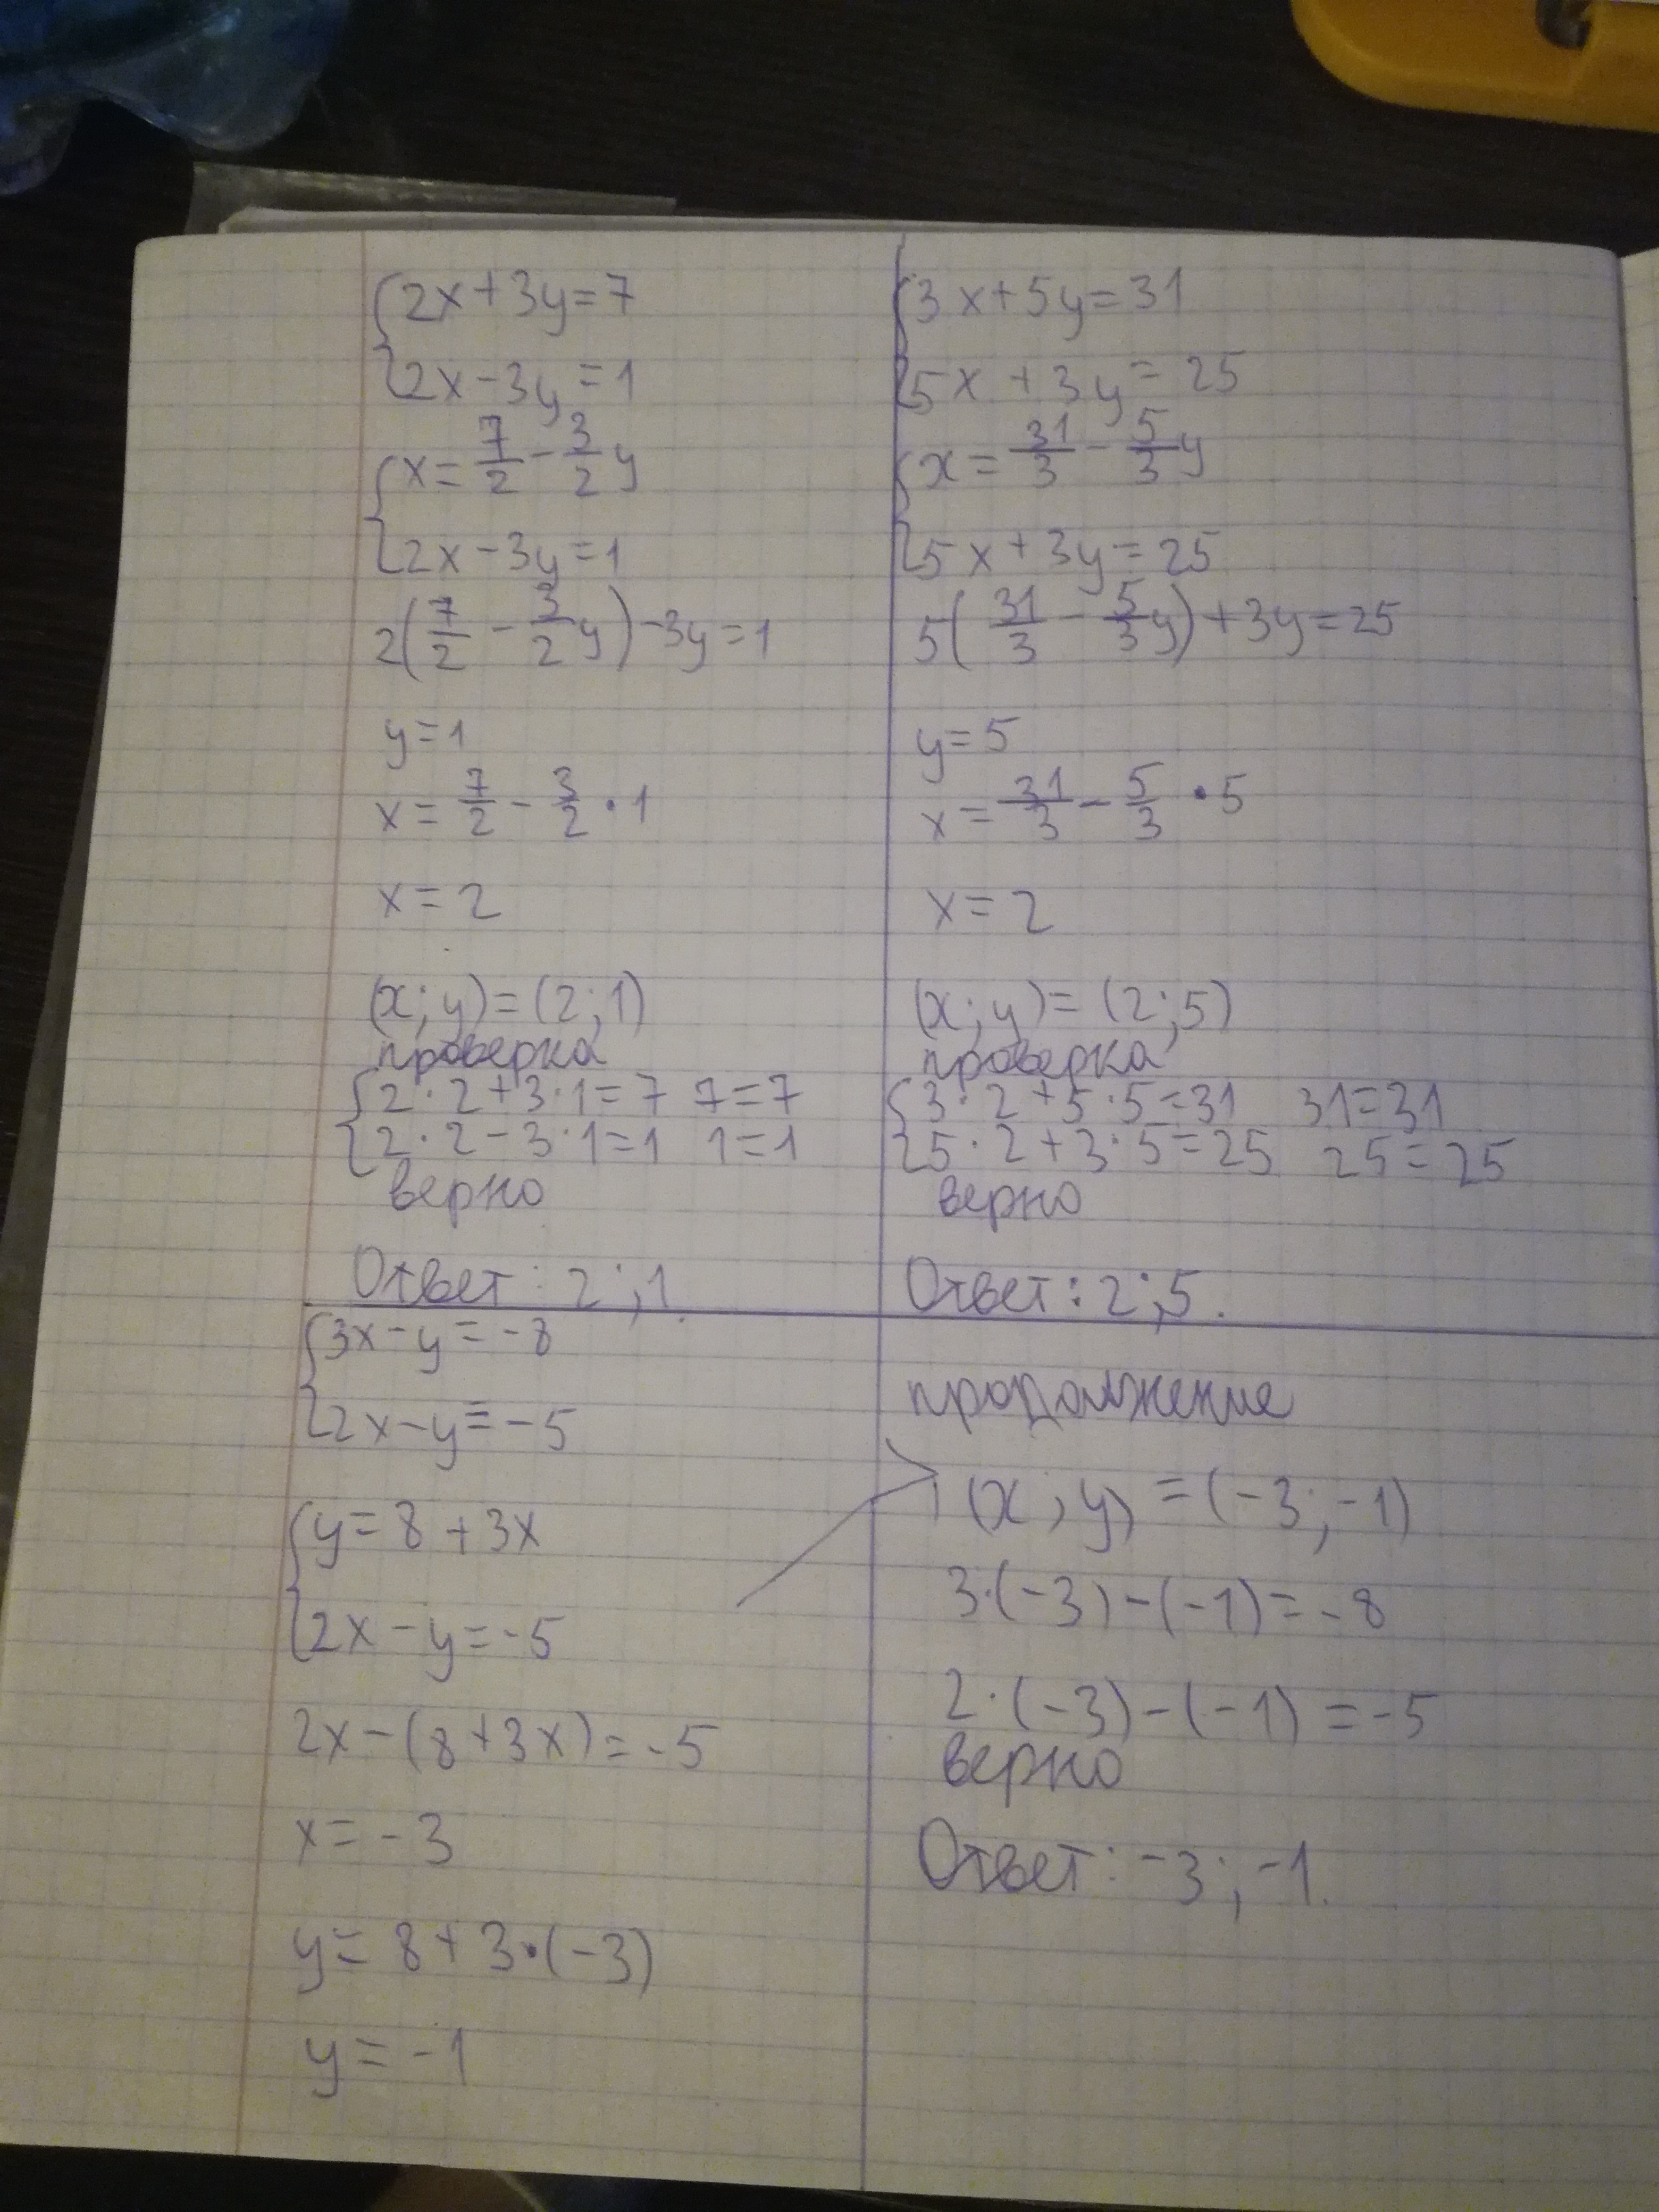 2x+3y=7
2x-3y=1
x=7/2-3/2y
2x-3y=1
2(7/2-3/2y)-3y=1
y=1
x=7/2-3/2·1
x=2
(x;y)=(2;1)
проверка
2·2+3·1=7 7=7
2·2-3·1=1 1=1
верно
Ответ: 2;1.
3x+5y=31
5x+3y=25
x=31/3-5/3y
5x+3y=25
5(31/3-5/3y)+3y=25
y=5
x=31/3-5/3·5
x=2
(x;y)=(2;5)
проверка
3·2+5·5=31 31=31
5·2+3·5=25 25=25
верно
Ответ: 2;5.
3x-y=-8
2x-y=-5
y=8+3x
2x-y=-5
2x-(8+3x)=-5
x=-3
y=8+3·(-3)
y=-1
продолжение
(x;y)=(-3;-1)
3·(-3)-(-1)=-8
2·(-3)-(-1)=-5
верно
Ответ: -3;-1.